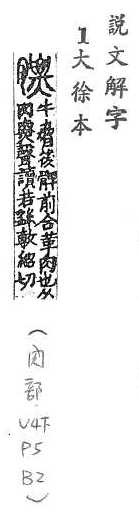 說文解字
1大徐本
膘
牛脅後髀前合革肉也从
肉𤐫聲讀若繇敷紹切
（肉部 V4下 P5 B2）